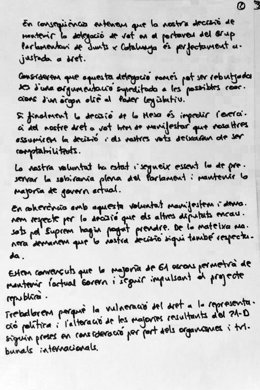 3
En conseqüència entenem que la nostra decisió de
mantenir la delegació de vot en el portaveu del Grup
Parlamentari de Junts x Catalunya és perfectament a-
justada a dret.
Considerem que aquesta delegació només pot ser rebutjada
des d'una argumentació supeditada a les possibles coac-
cions d'un òrgan aliè al Poder Legislatiu.
Si finalment la decisió de la Mesa és impedir l'exerci-
ci del nostre dret a vot hem de manifestar que nosaltres
assumirem la decisió i els nostres vots deixaran de ser
comptabilitzats.
La nostra voluntat ha estat i segueix essent la de pre-
servar la sobirania plena del Parlament i mantenir la
majoria de govern actual.
En coherència amb aquesta voluntat manifestem i dema-
nem respecte per la decisió que els altres diputats encau-
sats pel Suprem hagin pogut prendre. De la mateixa ma-
nera demanem que la nostra decisió sigui també respecta-
da.
Estem convençuts que la majoria de 61 escons permetrà de
mantenir l'actual Govern i seguir impulsant el projecte
republicà.
Treballarem perquè la vulneració del dret a la representa-
ció política i l'alteració de les majories resultants del 21-D
siguin preses en consideració per part dels organismes i tri-
bunals internacionals.